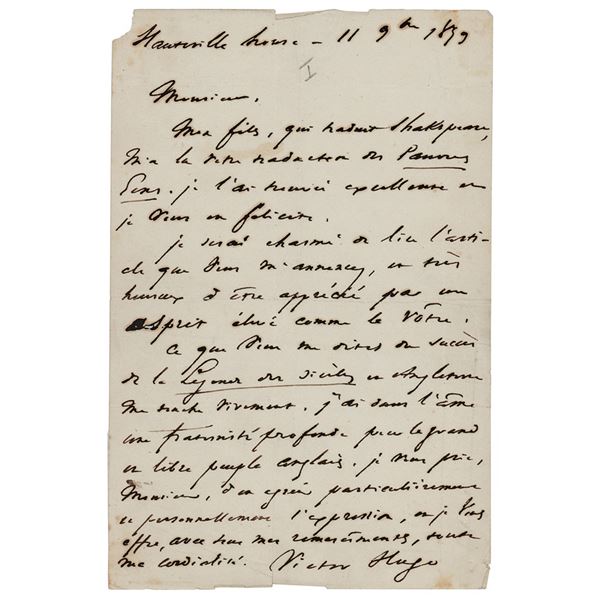 Hauteville house – 11 9bre 1859
I
Monsieur,
Mon fils, qui traduit Shakspeare,
m'a lu votre traduction des Pauvres
Gens. je l'ai trouvée excellente et
je vous en félicite.
je serai charmé de lire l'arti-
cle que vous m'annoncez, et très
heureux d'être apprécié par un
esprit élevé comme le vôtre.
Ce que vous me dites du succès
de la Légende des Siècles en Angleterre
me touche vivement. j'ai dans l'âme
une fraternité profonde pour le grand
et libre peuple anglais. je vous prie,
Monsieur, d'en agréer particulièrement
et personnellement l'expression, et je vous
offre, avec tous mes remercîments, toute
ma cordialité. Victor Hugo